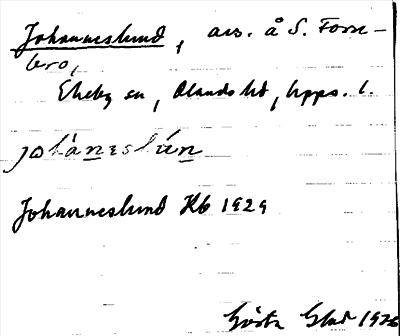 Johanneslund, avs. å S. Forn-
bro,
Ekeby sn, Olands hd, Upps. l.
johaneslún
Johanneslund Kb 1929
Gösta